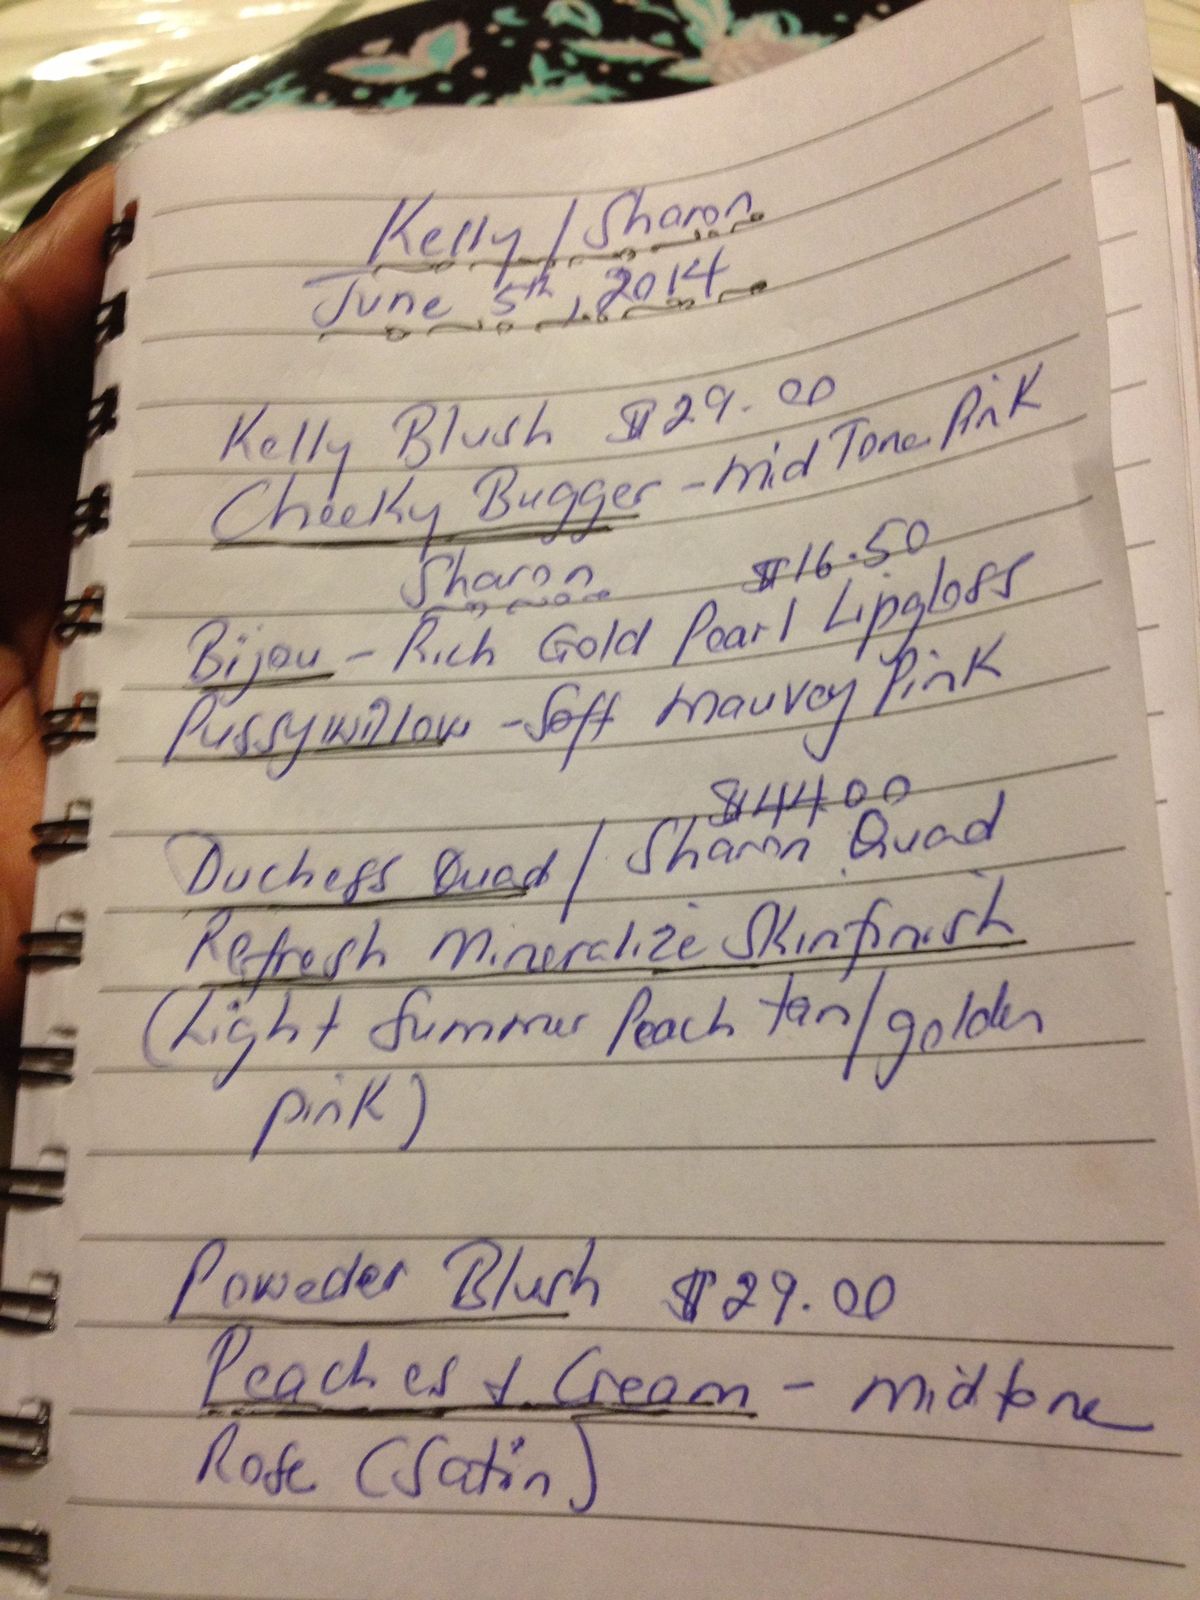 Kelly / Sharon
June 5th, 2014
Kelly Blush $29.00
Cheeky Bugger - mid Tone Pink
Sharon $16.50
Bijou - Rich Gold Pearl Lipgloss
Pussywillow - Soft mauvey Pink
$44.00
Duchess Quad / Sharon Quad
Refresh Mineralize Skinfinish
(Light Summer Peach tan/golden
pink)
Poweder Blush $29.00
Peaches & Cream - midtone
Rose (Satin)